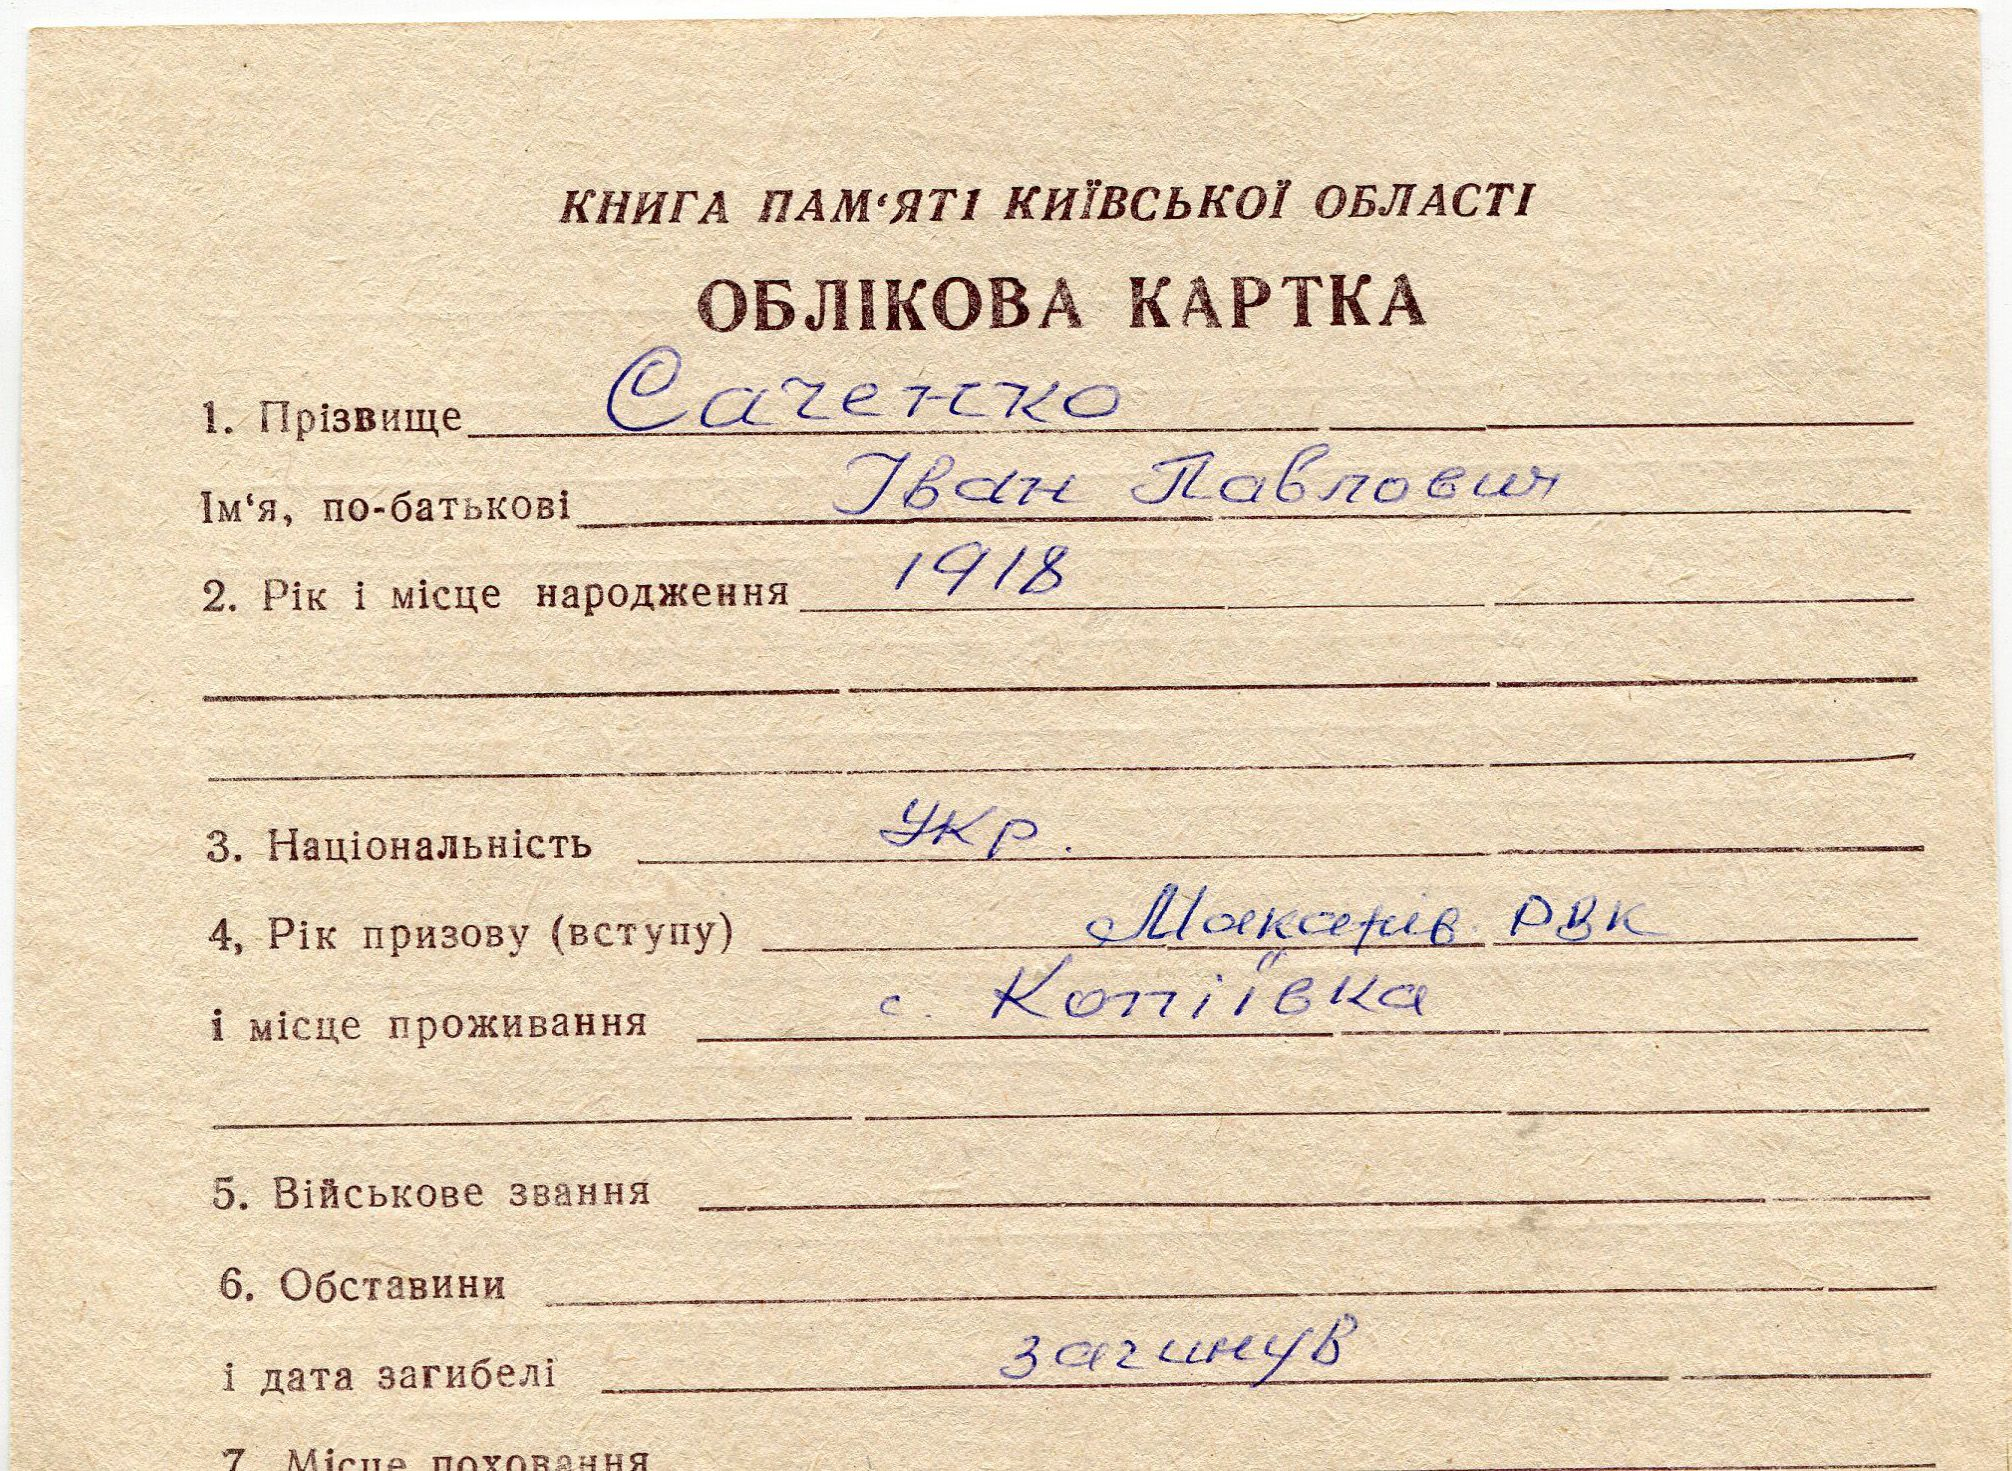 КНИГА ПАМ‘ЯТІ КИЇВСЬКОЇ ОБЛАСТІ
ОБЛІКОВА КАРТКА
1. Прізвище Саченко
Ім‘я, по-батькові Іван Павлович
2. Рік і місце народження 1918
3. Національність Укр.
4, Рік призову (вступу) Макарів. РВК
і місце проживання с. Копіївка
5. Військове звання
6. Обставини
і дата загибелі загинув
7. Місце поховання